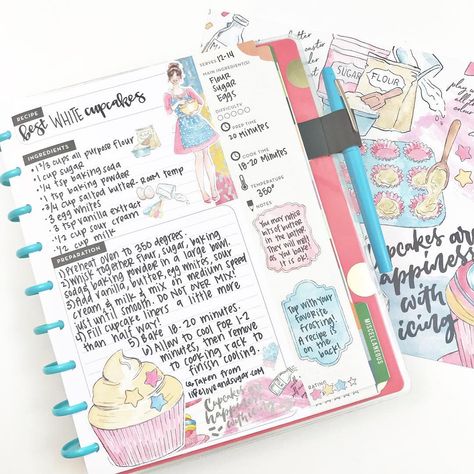 RECIPE
best WHITE cupcakes
SERVES 12-14
MAIN INGREDIENT(S)
Flour
Sugar
Eggs
DIFFICULTY
PREP TIME
20 minutes
COOK TIME
18-20 minutes
TEMPERATURE
350°
NOTES
You may notice
lots of butter
in the batter
that will melt
as you bake
it is ok!
Top with your
favorite
frosting!
A recipe is
on the
back!
RATING
INGREDIENTS
• 1 2/3 cups all purpose flour
• 1 cup sugar
• 1/4 tsp baking soda
• 1 tsp baking powder
• 3/4 cup salted butter-room temp
• 3 egg whites
• 1 tbsp vanilla extract
• 1/2 cup sour cream
• 1/2 cup milk
PREPARATION
1) Preheat oven to 350 degrees.
2) Whisk together flour, sugar, baking
soda & baking powder in a large bowl.
3) Add vanilla, butter, egg whites, sour
cream, & milk & mix on medium speed
just until smooth. DO NOT OVER MIX!
4) Fill cupcake liners a little more
than half way.
5) Bake 18-20 minutes.
6) Allow to cool for 1-2
minutes, then remove
to cooking rack to
finish cooling.
Taken from
lifeloveandsugar.com
Cupcakes are
happiness
with icing
MISCELLANEOUS
SUGAR
FLOUR
Cupcakes are
happiness
with
icing